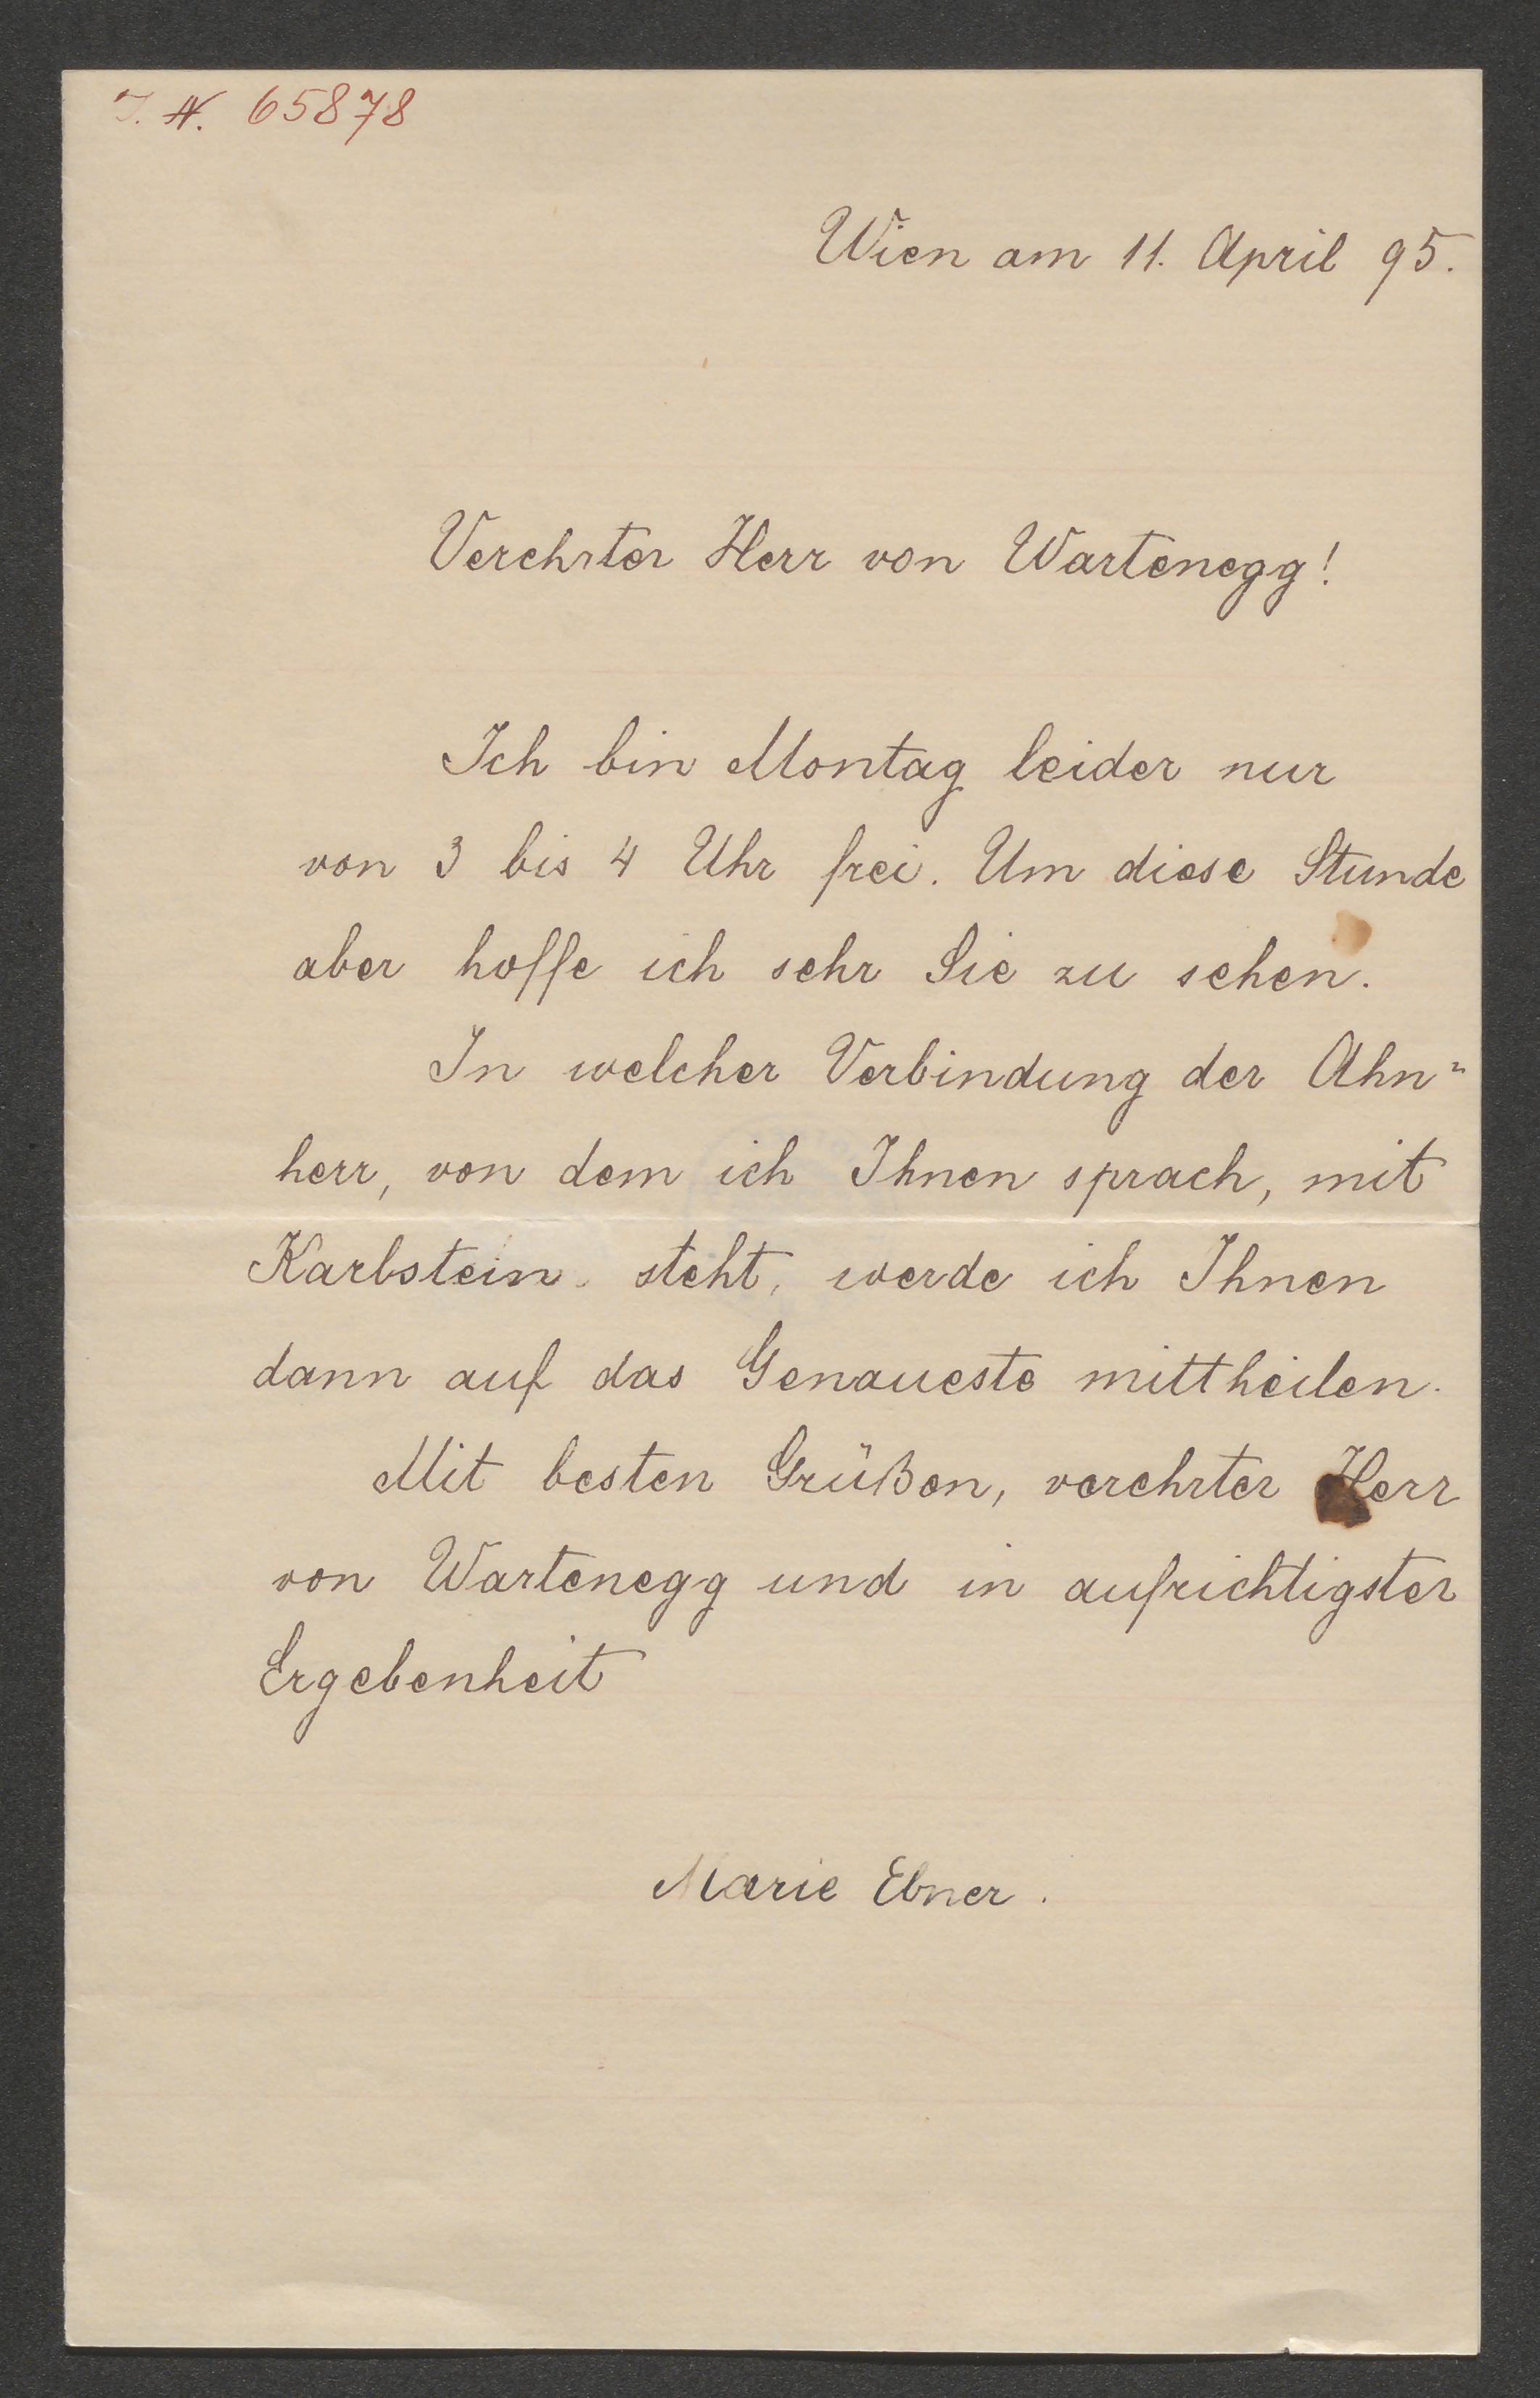 J. N. 65878
Wien am 11. April 95.
Verehrter Herr von Wartenegg!
Ich bin Montag leider nur
von 3 bis 4 Uhr frei. Um diese Stunde
aber hoffe ich sehr Sie zu sehen.
In welcher Verbindung der Ahn-
herr, von dem ich Ihnen sprach, mit
Karlstein steht, werde ich Ihnen
dann auf das Genaueste mittheilen.
Mit besten Grüßen, verehrter Herr
von Wartenegg und in aufrichtigster
Ergebenheit
Marie Ebner.